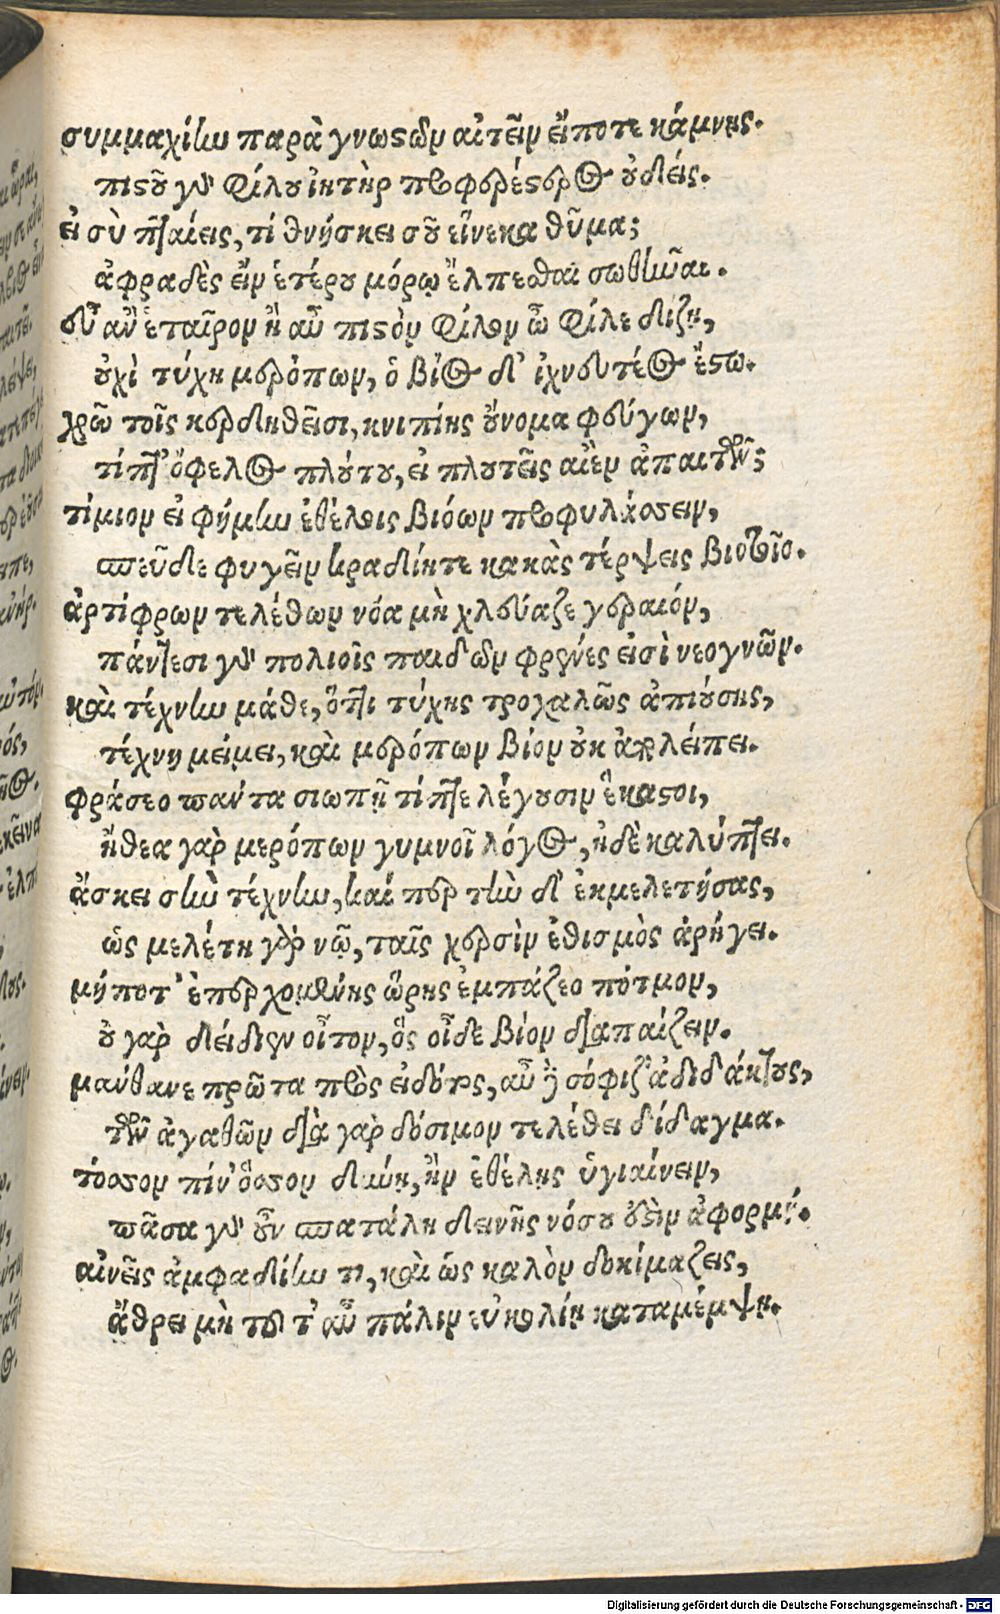 συμμαχίην παρὰ γνωστῶν αἰτεῖν εἴποτε κάμνης.
πιστοῦ γὰρ φίλου ἰητὴρ προφερέστερος οὐδείς.
εἰ σὺ πταίεις, τί θνήσκει σοῦ εἵνεκα θῦμα;
ἀφραδὲς εἴν ἑτέρου μόρῳ ἔλπεσθαι σωθῆναι.
εὖ ἂν ἑταῖρον ἢ αὖ πιστὸν φίλον ὦ φίλε δίζῃ,
οὐχὶ τύχη μερόπων, ὁ βίος δ' ἰχνευτέος ἔστω.
χρῶ τοῖς κερδηθεῖσι, κνιπίης οὔνομα φεύγων,
τί πτ' ὄφελος πλούτου, εἰ πλουτεῖς αἰὲν ἀπαιτῶν;
τίμιον εἰ φήμην ἐθέλοις βιόων προφυλάσσειν,
σπεῦδε φυγεῖν κραδίητε κακὰς τέρψεις βιοτοῖο.
ἀρτίφρων τελέθων νόα μὴ χλεύαζε γεραιόν,
πάντεσι γὰρ πολιοῖς παιδῶν φρένες εἰσὶ νεογνῶν.
καὶ τέχνην μάθε, ὅττι τύχης τροχαλῶς ἀπιούσης,
τέχνη μείμει, καὶ μερόπων βίον οὐκ ἀπολείπει.
φράσεο πάντα σιωπῇ τί πτε λέγουσιν ἕκαστοι,
ἤθεα γὰρ μερόπων γυμνοῖ λόγος, ἠδὲ καλύπτει.
ἄσκει σὴν τέχνην, καί περ τὴν δ' ἐκμελετήσας,
ὡς μελέτη γὰρ νῷ, ταῖς χερσὶν ἐθισμὸς ἀρήγει.
μήποτ' ἐπερχομένης ὥρης ἐμπάζεο πότμον,
οὐ γὰρ δείδιεν οἶτον, ὃς οἶδε βίον διαπαίζειν.
μάνθανε πρῶτα πρὸς εἰδότας, αὖ δὲ σόφιζ' ἀδιδάκτους,
τῶν ἀγαθῶν διὰ γὰρ δόσιμον τελέθει δίδαγμα.
τόσσον πῖν' ὅσσον διώη, ἢν ἐθέλῃς ὑγιαίνειν,
πᾶσα γὰρ οὖν σπατάλη δεινῆς νόσου ἐστὶν ἀφορμή.
αἰνεῖς ἀμφαδίην τι, καὶ ὡς καλὸν δοκίμαζεις,
ἄθρει μὴ τό τ' αὖ πάλιν εὐκολίῃ καταμέμψῃ.
Digitalisierung gefördert durch die Deutsche Forschungsgemeinschaft - DFG